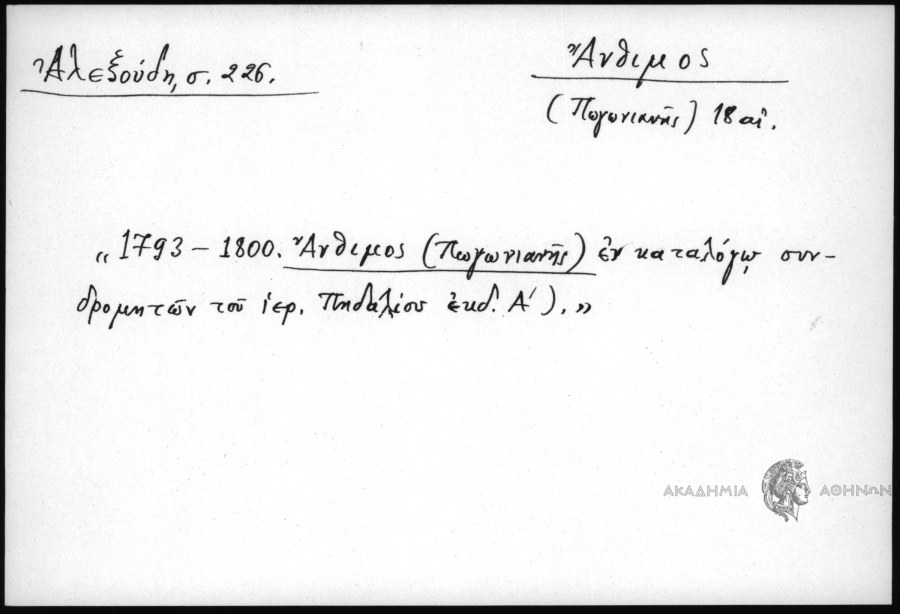 Ἀλεξούδη, σ. 226.
Ἄνθιμος
(Πωγωνιανῆς) 18 αἰ.
„ 1793 – 1800. Ἄνθιμος (Πωγωνιανῆς) ἐν καταλόγῳ συν-
δρομητῶν τοῦ ἱερ. Πηδαλίου ἐκδ. Α΄). »
ΑΚΑΔΗΜΙΑ ΑΘΗΝΩΝ